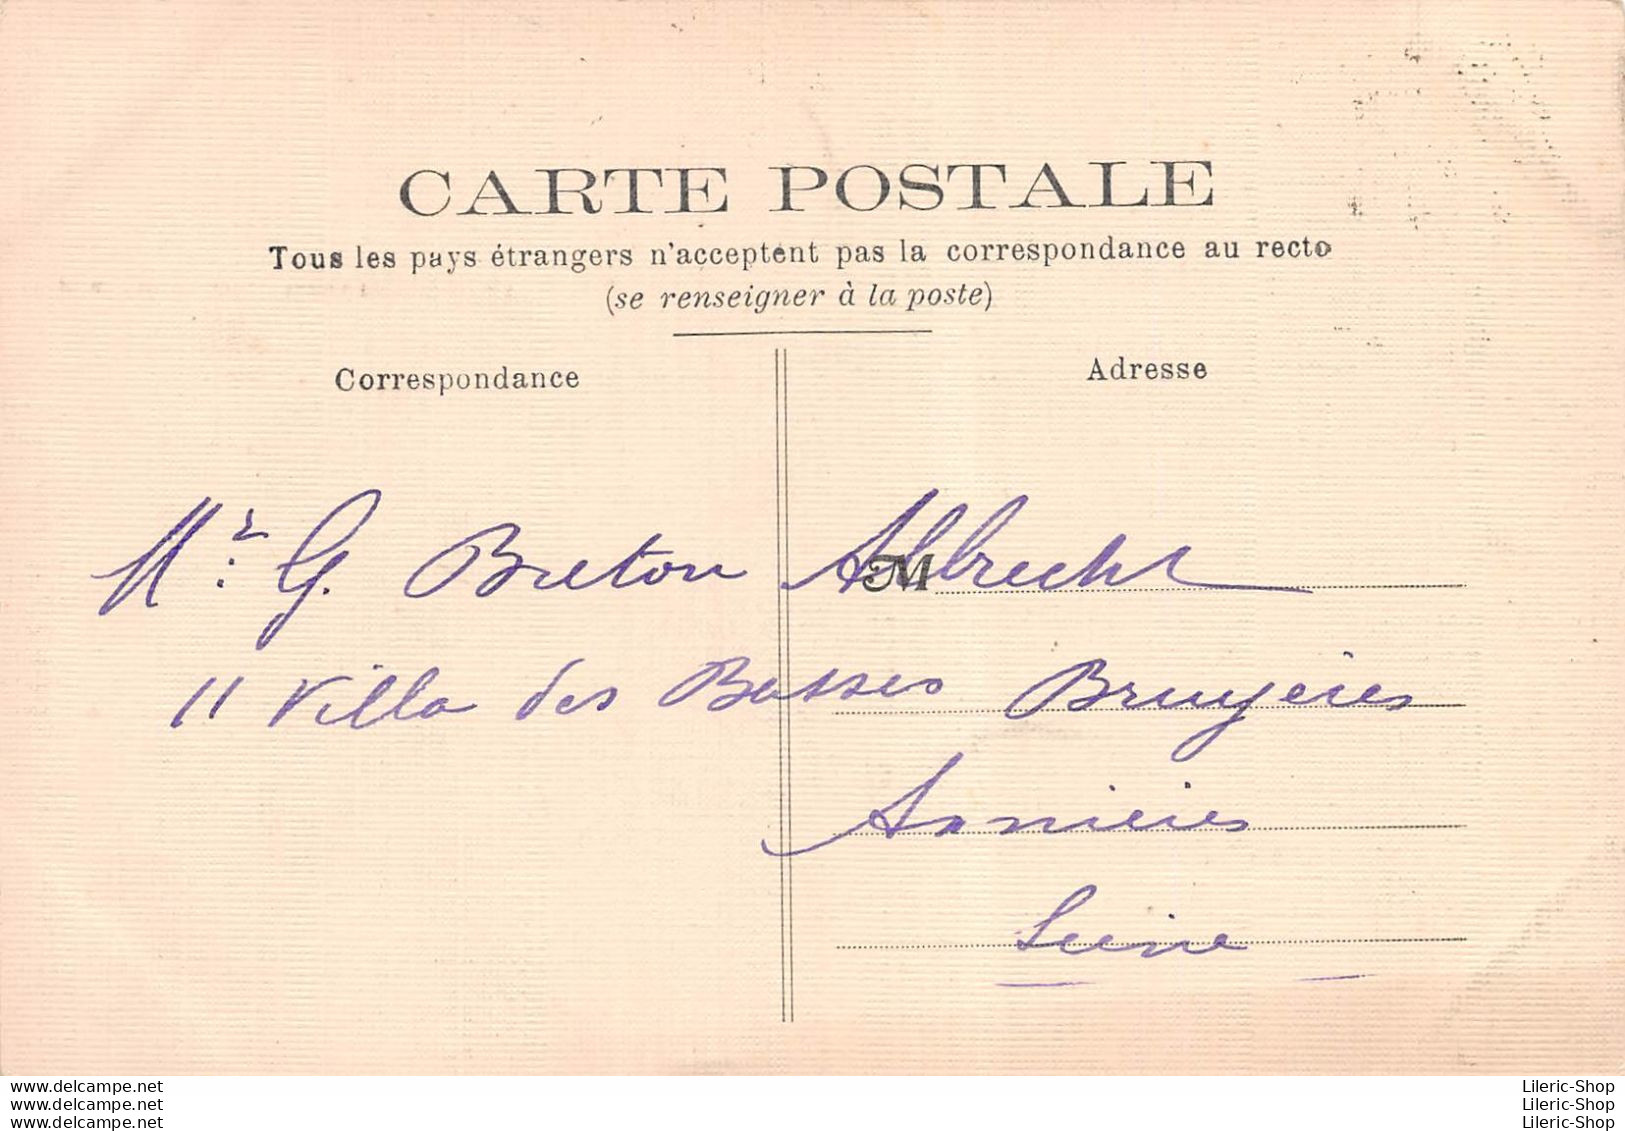 CARTE POSTALE
Tous les pays étrangers n'acceptent pas la correspondance au recto
(se renseigner à la poste)
Correspondance
Adresse
Mr. G. Breton Albrecht
M
11 Villa des Basses Bruyères
Asnières
Seine
www.delcampe.net
www.delcampe.net
www.delcampe.net
Lileric-Shop
Lileric-Shop
Lileric-Shop